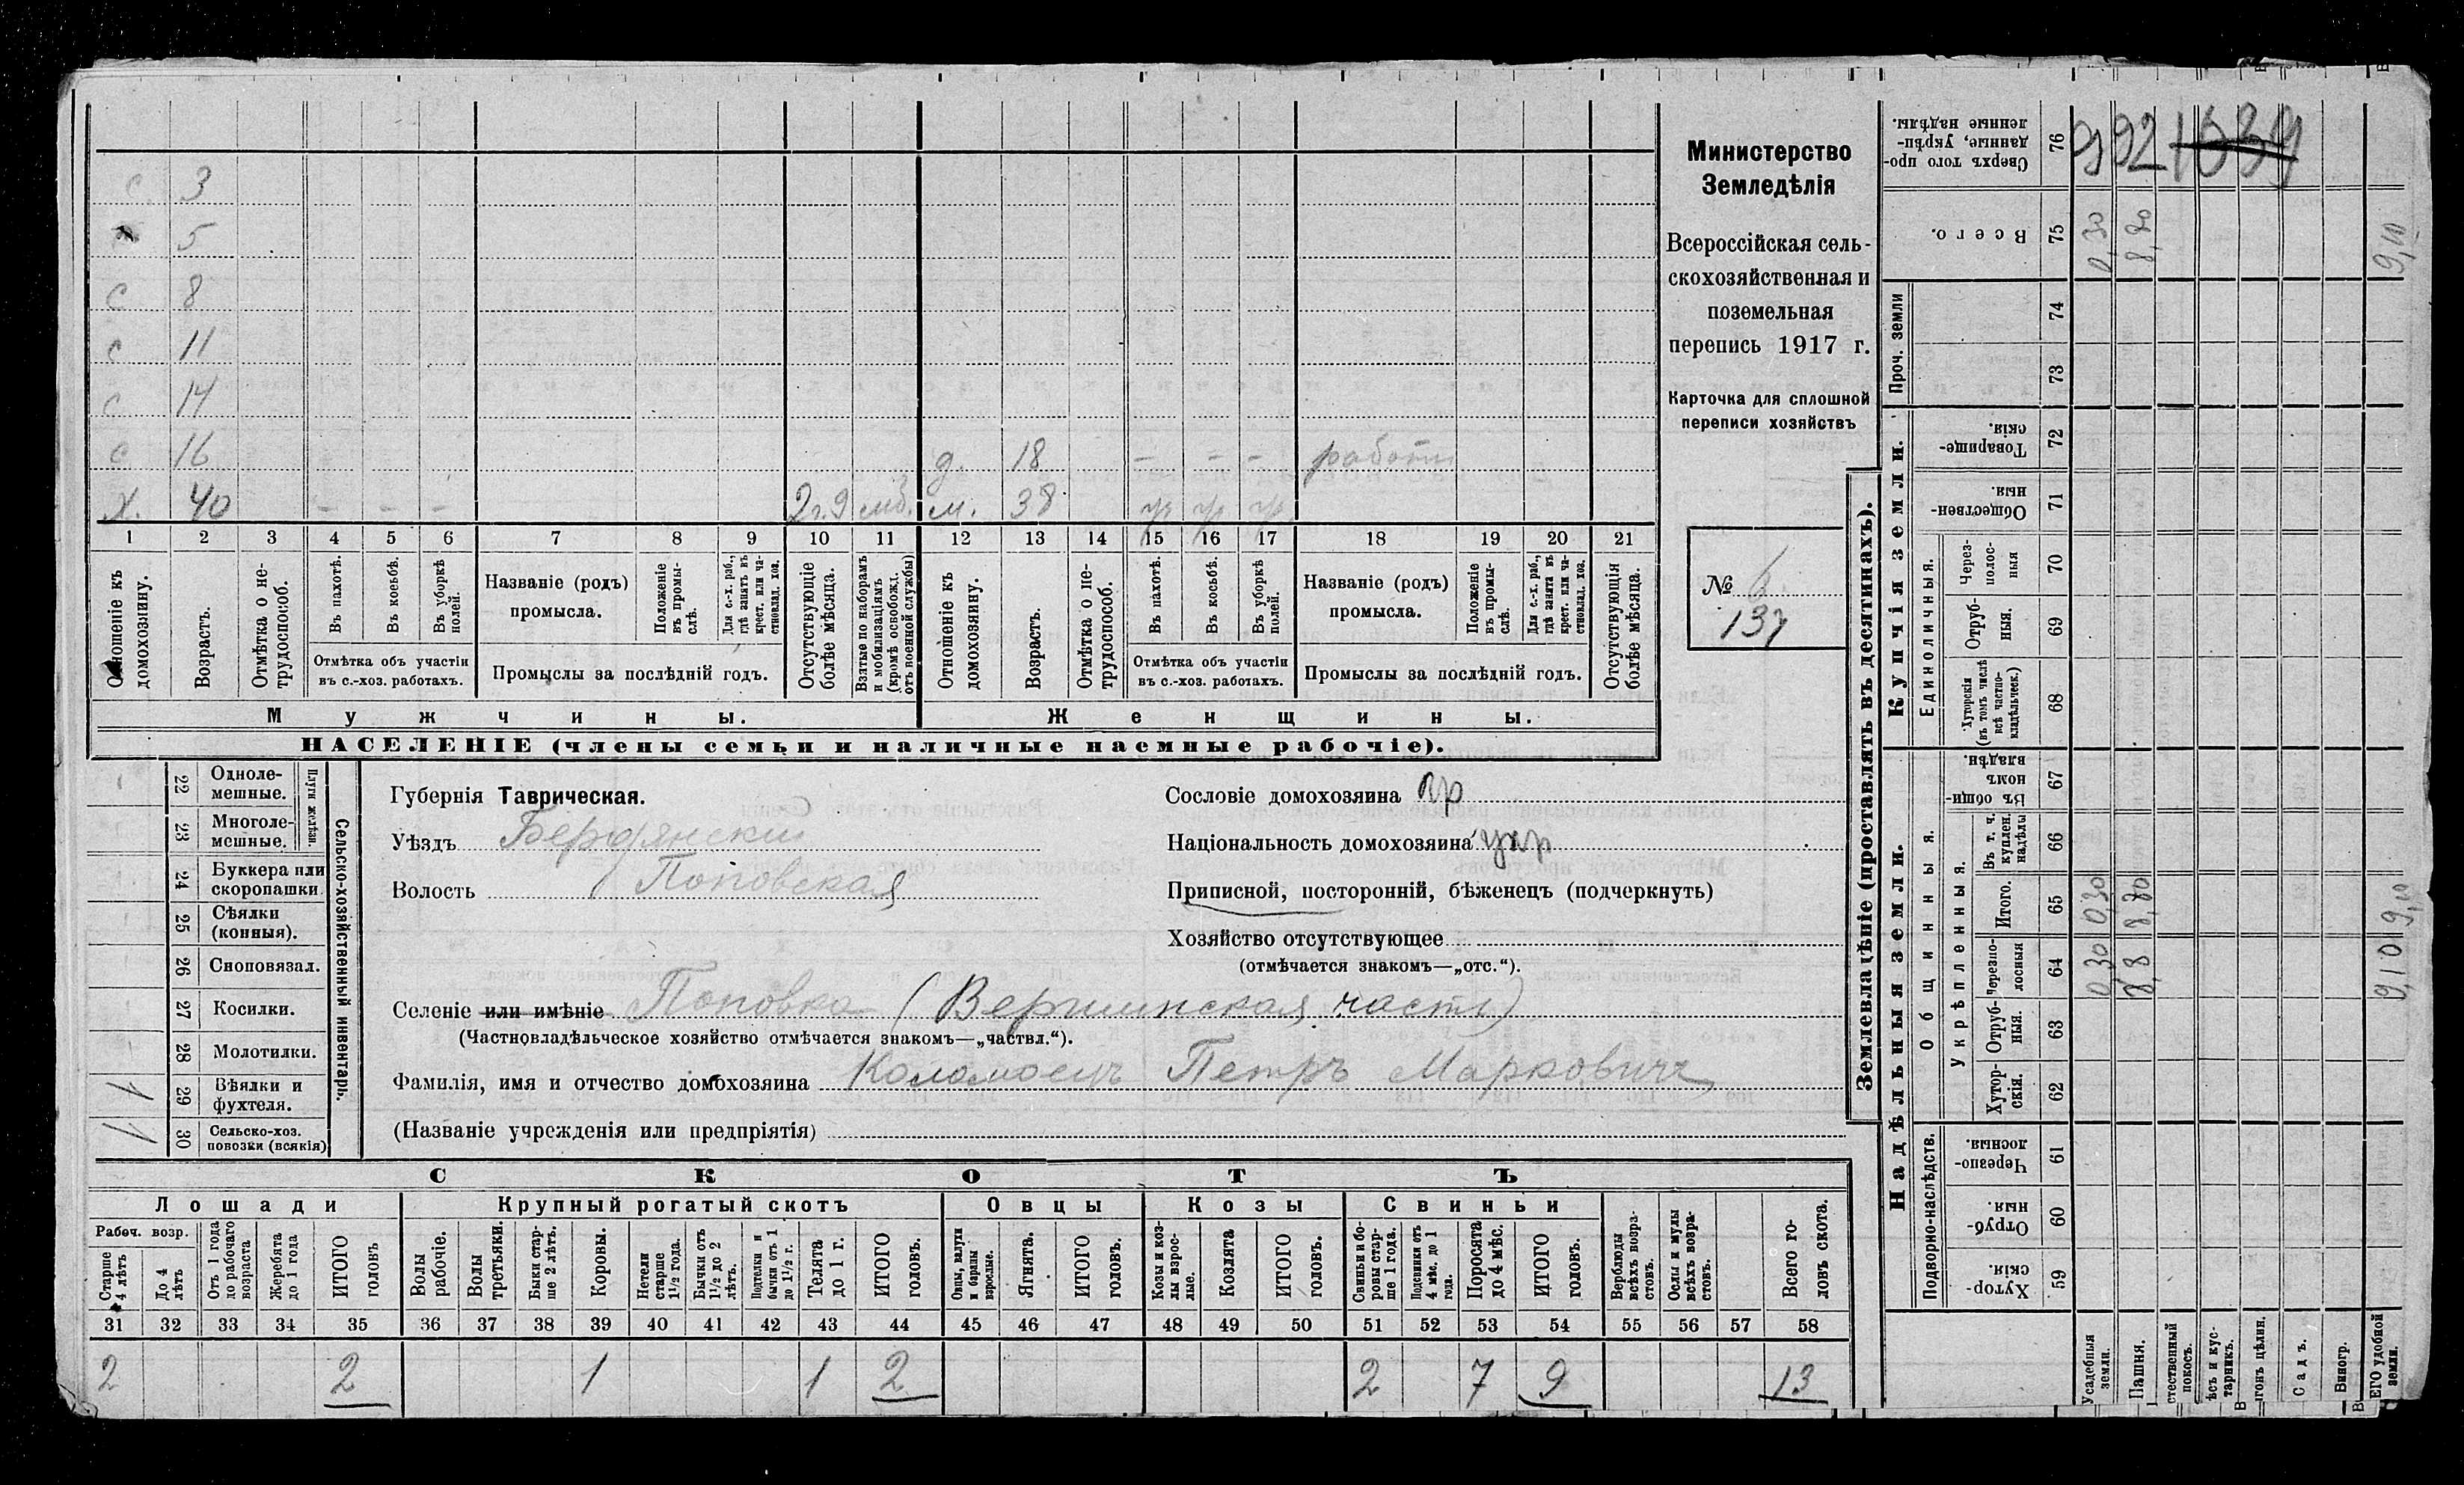 Министерство
Земледѣлія
Всероссійская сель-
скохозяйственная и
поземельная
перепись 1917 г.
Карточка для сплошной
переписи хозяйствъ
№ 6
137
с 3
5
с 8
с 11
с 14
с 16 д. 18 – – – работн
Х. 40 – – – 2г.9 мб. м. 38 ур ур ур
1 2 3 4 5 6 7 8 9 10 11 12 13 14 15 16 17 18 19 20 21
Отношеніе къ домохозяину.
Возрастъ.
Отмѣтка о не-трудоспособ.
Въ пахотѣ.
Въ косьбѣ.
Въ уборкѣ полей.
Отмѣтка объ участіи
въ с.-хоз. работахъ.
Названіе (родъ)
промысла.
Положеніе въ промы-слѣ.
Для с.-х. раб., гдѣ занятъ въ крест. или ча-стновлад. хоз.
Промыслы за послѣдній годъ.
Отсутствующіе болѣе мѣсяца.
Взятые по наборамъ и мобилизаціямъ (кромѣ освобожд. отъ военной службы)
Отношеніе къ домохозяину.
Возрастъ.
Отмѣтка о не-трудоспособ.
Въ пахотѣ.
Въ косьбѣ.
Въ уборкѣ полей.
Отмѣтка объ участіи
въ с.-хоз. работахъ.
Названіе (родъ)
промысла.
Положеніе въ промы-слѣ.
Для с.-х. раб., гдѣ занята въ крест. или ча-стновлад. хоз.
Промыслы за послѣдній годъ.
Отсутствующія болѣе мѣсяца.
Мужчины.
Женщины.
НАСЕЛЕНІЕ (члены семьи и наличные наемные рабочіе).
Сельско-хозяйственный инвентарь.
Плуги желѣзн.
22 Одноле-мешные.
23 Многоле-мешные.
24 Буккера или скоропашки
25 Сѣялки (конныя).
26 Сноповязал.
27 Косилки.
28 Молотилки.
1 29 Вѣялки и фухтеля.
30 Сельско-хоз. повозки (всякія)
Губернія Таврическая.
Уѣздъ Бердянскій
Волость Поповская
Сословіе домохозяина кр
Національность домохозяина укр
Приписной, посторонній, бѣженецъ (подчеркнуть)
Хозяйство отсутствующее
(отмѣчается знакомъ—„отс.“).
Селеніе или имѣніе Поповка (Вершинская часть)
(Частновладѣльческое хозяйство отмѣчается знакомъ—„частвл.“).
Фамилія, имя и отчество домохозяина Коломоецъ Петръ Марковичъ
(Названіе учрежденія или предпріятія)
СКОТЪ
Лошади
Крупный рогатый скотъ
Овцы
Козы
Свиньи
Рабоч. возр.
Старше 4 лѣтъ
До 4 лѣтъ
Отъ 1 года до рабочаго возраста
Жеребята до 1 года
ИТОГО головъ
Волы рабочіе.
Волы третьяки.
Быки стар-ше 2 лѣтъ.
Коровы.
Нетели старше 1½ года.
Бычки отъ 1½ до 2 лѣтъ.
Подтелки и бычки отъ 1 до 1½ г.
Телята до 1 г.
ИТОГО головъ.
Овцы, валухи и бараны взрослые.
Ягнята.
ИТОГО головъ.
Козы и коз-лы взрос-лые.
Козлята
ИТОГО головъ.
Свиньи и бо-ровы стар-ше 1 года.
Подсвинки отъ 4 мѣс. до 1 года.
Поросята до 4 мѣс.
ИТОГО головъ.
Верблюды всѣхъ возра-стовъ.
Ослы и мулы всѣхъ возра-стовъ.
Всего го-ловъ скота.
31 32 33 34 35 36 37 38 39 40 41 42 43 44 45 46 47 48 49 50 51 52 53 54 55 56 57 58
2 2 1 1 2 2 7 9 13
Землевладѣніе (проставлять въ десятинахъ).
Надѣльныя земли.
Купчія земли.
Проч. земли
Подворно-наслѣдств.
Общинныя.
Укрѣпленныя.
Единоличныя.
Сверхъ того про-данные, укрѣп-ленные надѣлы. 76 992 1639
Всего. 75 0,30 8,80 9,10
74
73
Товарище-скія. 72
Обществен-ныя. 71
Через-полос-ныя 70
Отруб-ныя. 69
Хуторскія (въ томъ числѣ всѣ частно-владѣльческ.) 68
Въ общин-номъ владѣн. 67
Въ т. ч. куплен. надѣлы 66
Итого. 65 0,30 8,80 9,10
Черезпо-лосныя 64 0,30 8,8 9,10
Отруб-ныя. 63
Хутор-скія. 62
Черезпо-лосныя. 61
Отруб-ныя. 60
Хутор-скія. 59
Усадебныя земли.
Пашня.
стественный покосъ.
ѣсъ и кус-тарникъ.
ыгонъ цѣлин.
Садъ.
Виногр.
ЕГО удобной земли.